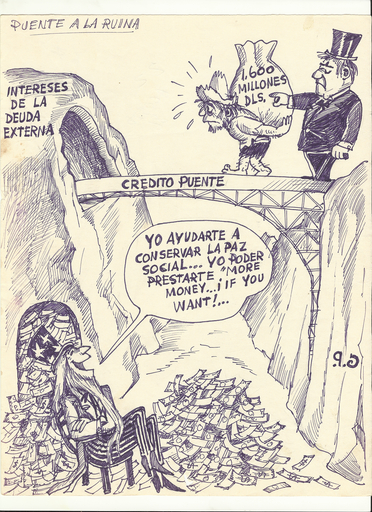 PUENTE A LA RUINA
INTERESES
DE LA
DEUDA
EXTERNA
1.600
MILLONES
DLS.
CREDITO PUENTE
YO AYUDARTE A
CONSERVAR LA PAZ
SOCIAL... YO PODER
PRESTARTE "MORE
MONEY...¡ IF YOU
WANT!...
G.P.